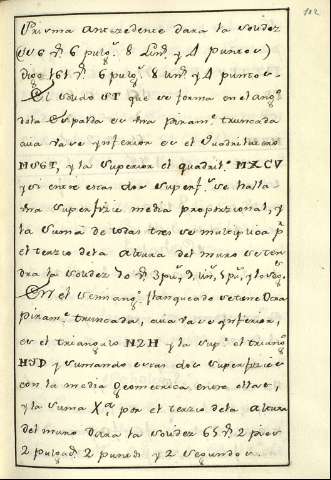 102
Prisma antecedente dara la solidez
digo 161 6 pulg.s 8 lin.s y 4 puntos.
El solido ST que se forma en el ang.o
dela Espalda es una piram.e truncada
cuia vase ynferior es el Quadrilatero
MSGT, y la superior el quadril.o MXCV
y si entre estas dos superf.s se halla
una superfizie media proporzional, y
la suma de todas tres se multiplica p.r
el terzio dela altura del muro se ten
dra la solidez
En el semiang.o flanqueado se tiene otra
piram.e truncada, cuia vase ynferior,
es el triangulo NZH y la sup.r el triang.o
HYD y sumando estas dos superfizies
con la media geometrica entre ellas,
y la suma X.da por el terzio dela altura
del muro dara la solidez 65 2 pies
2 pulgad.s 2 puntos y 2 segundos.